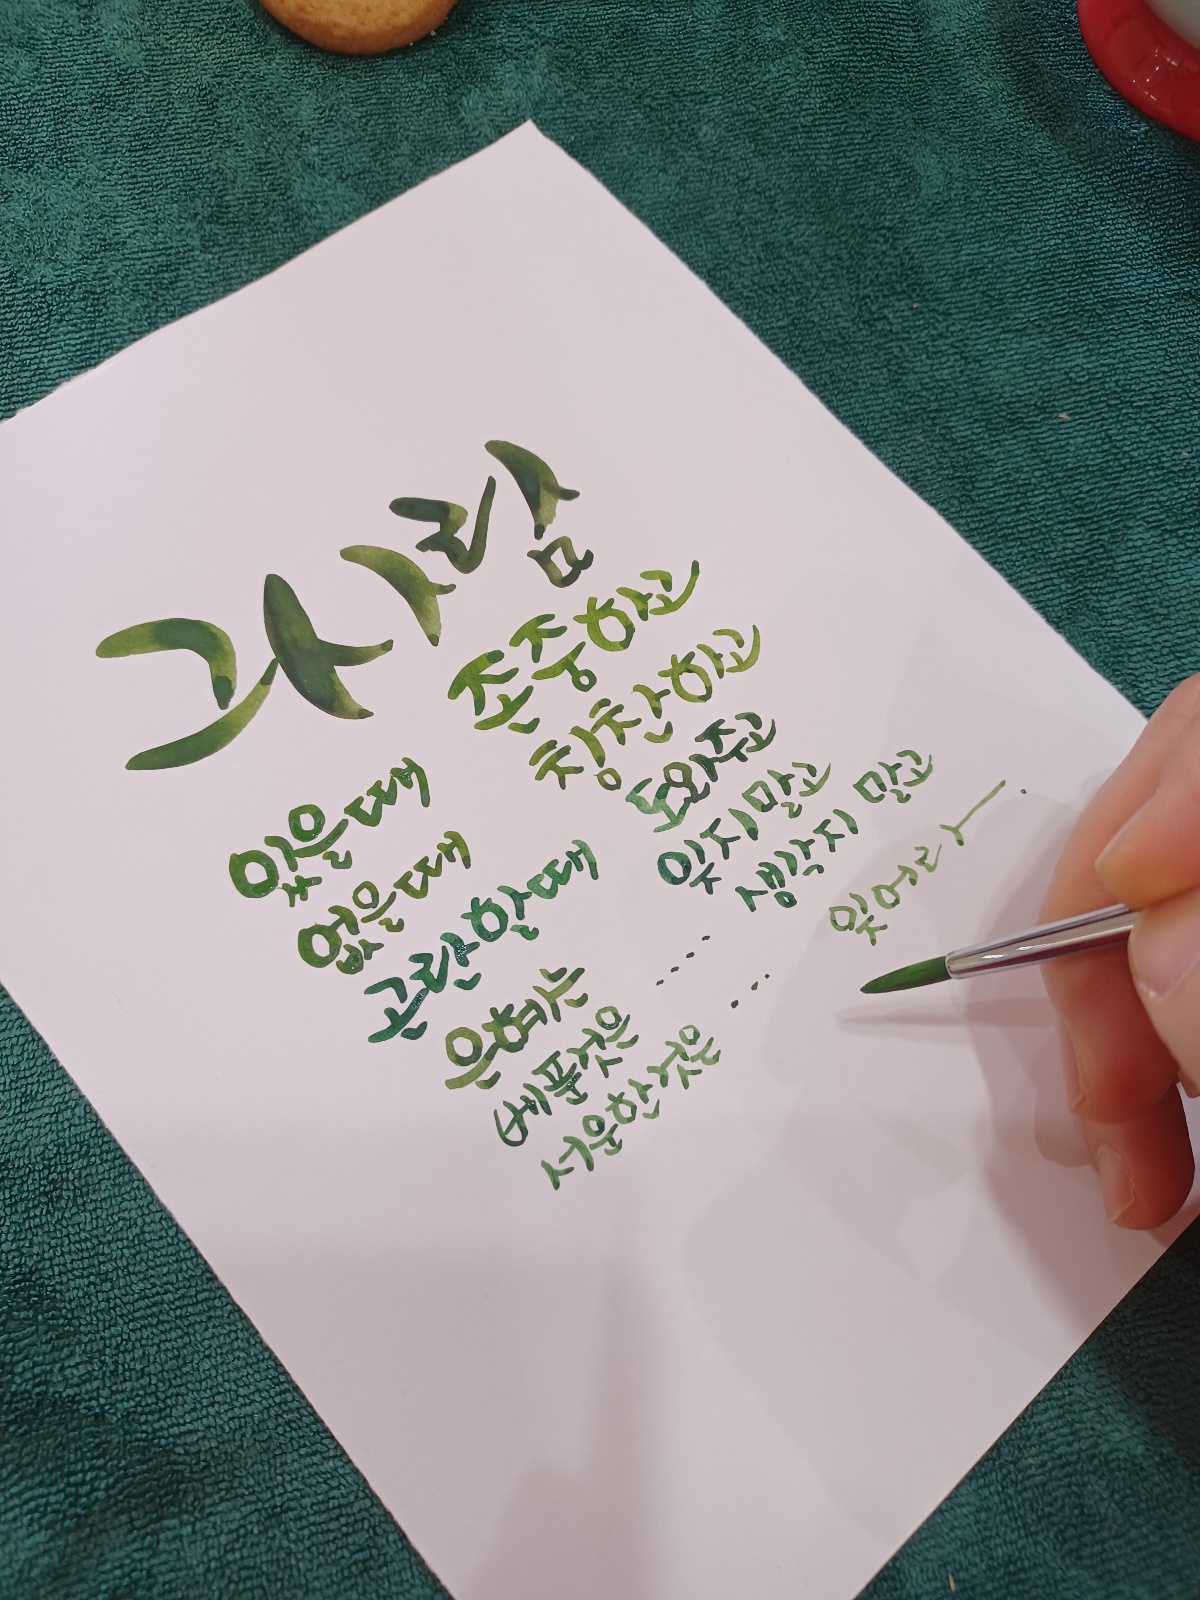 그 사람
있을때 존중하고
없을때 칭찬하고
곤란할때 도와주고
은혜는 잊지 말고
베푼것은 .... 생각지 말고
서운한것은 ... 잊어라.